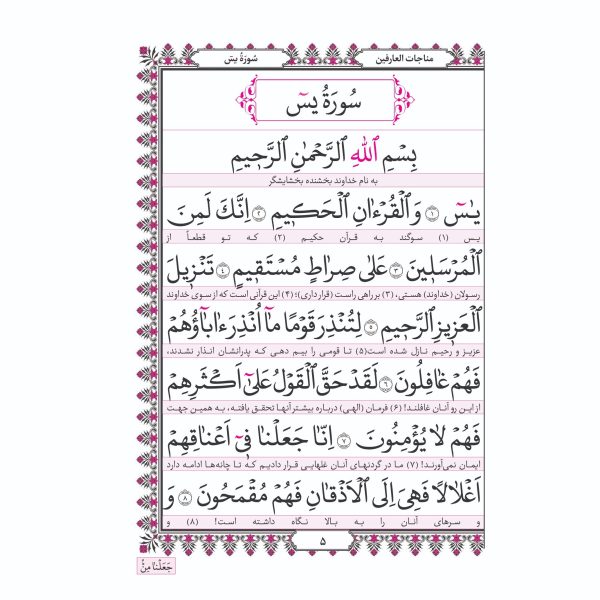 مناجات العارفین
سُورَةُ یسٓ
سُورَةُ یسٓ
بِسْمِ ٱللهِ ٱلرَّحْمٰنِ ٱلرَّحیمِ
به نام خداوند بخشنده بخشایشگر
یٰسٓ ﴿۱﴾ وَٱلْقُرْءٰانِ ٱلْحَکیمِ ﴿۲﴾ اِنَّکَ لَمِنَ
یس (۱) سوگند به قرآن حکیم (۲) که تو قطعاً از
ٱلْمُرْسَلینَ ﴿۳﴾ عَلیٰ صِراطٍ مُسْتَقیمٍ ﴿۴﴾ تَنْزیلَ
رسولان (خداوند) هستی، (۳) بر راهی راست (قرار داری)؛ (۴) این قرآنی است که از سوی خداوند
ٱلْعَزیزِ ٱلرَّحیمِ ﴿۵﴾ لِتُنْذِرَ قَوْمًا مآ اُنْذِرَ ءٰابآؤُهُمْ
عزیز و رحیم نازل شده است (۵) تا قومی را بیم دهی که پدرانشان انذار نشدند،
فَهُمْ غافِلُونَ ﴿۶﴾ لَقَدْ حَقَّ ٱلْقَوْلُ عَلیٰٓ اَکْثَرِهِمْ
از این رو آنان غافلند! (۶) فرمان (الهی) درباره بیشتر آنها تحقق یافته، به همین جهت
فَهُمْ لا یُؤْمِنُونَ ﴿۷﴾ اِنّا جَعَلْنا فیٓ اَعْناقِهِمْ
ایمان نمی‌آورند! (۷) ما در گردنهای آنان غلهایی قرار دادیم که تا چانه‌ها ادامه دارد
اَغْلالًا فَهِیَ اِلَی ٱلْاَذْقانِ فَهُمْ مُقْمَحُونَ ﴿۸﴾ وَ
و سرهای آنان را به بالا نگاه داشته است! (۸) و
۵
جَعَلْنا مِنْ